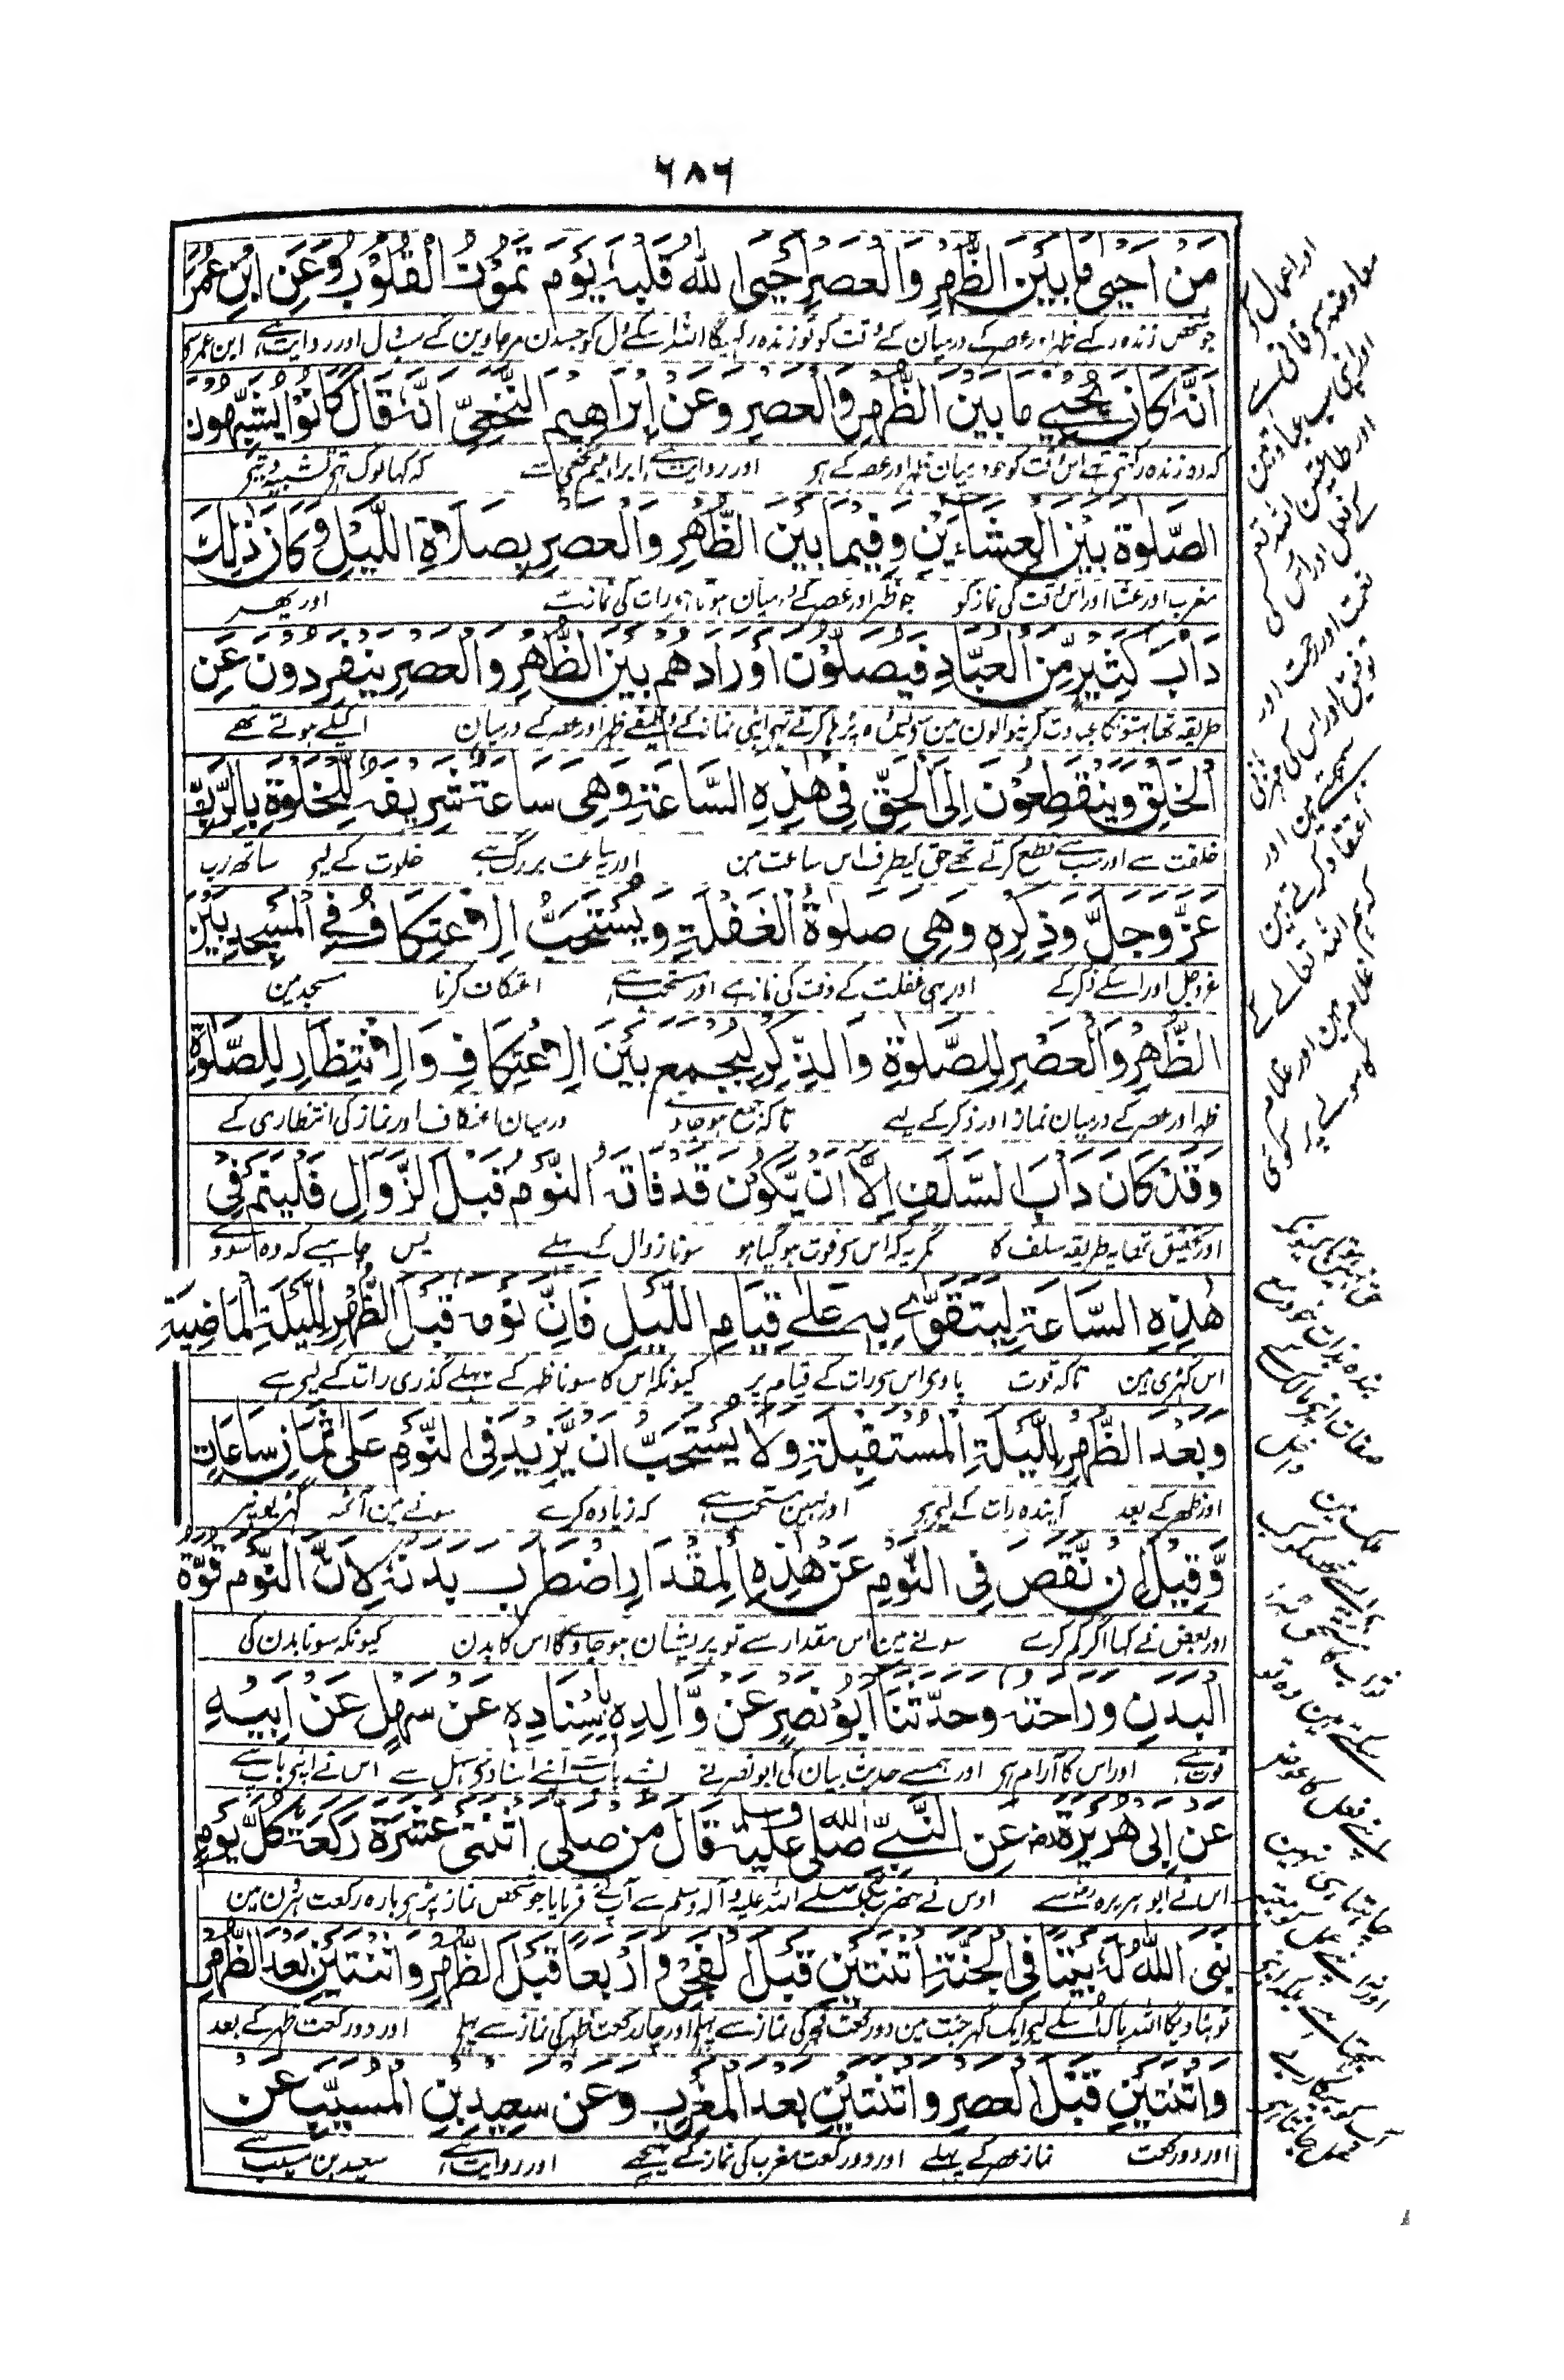 ۶۸۶
مَنْ اَحْيٰى مَا بَيْنَ الظُّهْرِ وَالْعَصْرِ اَحْيَى اللّٰهُ قَلْبَهٗ يَوْمَ تَمُوْتُ الْقُلُوْبُ وَعَنِ ابْنِ عُمَرَ
جو شخص زندہ رکھے ظہر اور عصر کے درمیان کے وقت کو تو زندہ رکھیگا اللہ اسکے دل کو جسدن مر جاوین گے سب دل اور روایت ہے ابن عمر سے
اَنَّهٗ كَانَ يُحْيِيْ مَا بَيْنَ الظُّهْرِ وَالْعَصْرِ وَعَنْ اِبْرَاهِيْمَ النَّخَعِيِّ اَنَّهٗ قَالَ كَانُوْا يُشَبِّهُوْنَ
کہ وہ زندہ رکھتے تھے اس وقت کو جو درمیان ظہر اور عصر کے ہے اور روایت ہے ابراہیم نخعی سے کہ کہا لوگ تھے تشبیہ دیتے
الصَّلٰوةَ بَيْنَ الْعِشَاءَيْنِ وَفِيْمَا بَيْنَ الظُّهْرِ وَالْعَصْرِ بِصَلَاةِ اللَّيْلِ وَكَانَ ذٰلِكَ
مغرب اور عشا اور اس وقت کی نماز کو جو ظہر اور عصر کے درمیان ہوتا ہے رات کی نماز سے اور یہ
دَأْبَ كَثِيْرٍ مِّنَ الْعُبَّادِ فَيُصَلُّوْنَ اَوْرَادَهُمْ بَيْنَ الظُّهْرِ وَالْعَصْرِ يَنْفَرِدُوْنَ عَنِ
طریقہ تھا بہتونکا عبادت کرنیوالون مین سے پس وہ پڑھا کرتے تھے اپنی نماز کے وظیفے ظہر اور عصر کے درمیان اکیلے ہوتے تھے
الْخَلْقِ وَيَنْقَطِعُوْنَ اِلَى الْحَقِّ فِيْ هٰذِهِ السَّاعَةِ وَهِيَ سَاعَةٌ شَرِيْفَةٌ لِّلْخَلْوَةِ بِالرَّبِّ
خلقت سے اور سب سے قطع کرتے تھے حق کیطرف اس ساعت مین اور یہ ساعت بزرگ ہے خلوت کے لیے ساتھ رب
عَزَّ وَجَلَّ وَذِكْرِهٖ وَهِيَ صَلٰوةُ الْغَفْلَةِ وَيُسْتَحَبُّ الْاِعْتِكَافُ فِي الْمَسْجِدِ بَيْنَ
عز وجل اور اسکے ذکر کے اور یہی غفلت کے وقت کی نماز ہے اور مستحب ہے اعتکاف کرنا مسجد مین
الظُّهْرِ وَالْعَصْرِ لِلصَّلٰوةِ وَالذِّكْرِ لِيَجْمَعَ بَيْنَ الْاِعْتِكَافِ وَالْاِنْتِظَارِ لِلصَّلٰوةِ
ظہر اور عصر کے درمیان نماز اور ذکر کے لیے تاکہ جمع ہو جاوے درمیان اعتکاف اور نماز کی انتظاری کے
وَقَدْ كَانَ دَأْبَ السَّلَفِ اِلَّا اَنْ يَّكُوْنَ قَدْ فَاتَهُ النَّوْمُ قَبْلَ الزَّوَالِ فَلْيَنَمْ فِيْ
اور تحقیق تھا یہ طریقہ سلف کا مگر یہ کہ اس سے فوت ہو گیا ہو سونا زوال کے پہلے پس چاہیے کہ وہ سووے
هٰذِهِ السَّاعَةِ لِيَتَقَوّٰى بِهٖ عَلٰى قِيَامِ اللَّيْلِ فَاِنَّ نَوْمَهٗ قَبْلَ الظُّهْرِ لِلَّيْلَةِ الْمَاضِيَةِ
اس گھڑی مین تاکہ قوت پاوے اس سے رات کے قیام پر کیونکہ اس کا سونا ظہر کے پہلے گذری رات کے لیے ہے
وَبَعْدَ الظُّهْرِ لِلَّيْلَةِ الْمُسْتَقْبِلَةِ وَلَا يُسْتَحَبُّ اَنْ يَّزِيْدَ فِي النَّوْمِ عَلٰى ثَمَانِ سَاعَاتٍ
اور ظہر کے بعد آیندہ رات کے لیے ہے اور نہین مستحب ہے کہ زیادہ کرے سونے مین آٹھ گھڑیونپر
وَّقِيْلَ اِنْ نَّقَصَ فِي النَّوْمِ عَنْ هٰذِهِ الْمِقْدَارِ اِضْطَرَبَ بَدَنُهٗ لِاَنَّ النَّوْمَ قُوَّةُ
اور بعض نے کہا اگر کم کرے سونے مین اس مقدار سے تو پریشان ہو جاویگا اس کا بدن کیونکہ سونا بدن کی
الْبَدَنِ وَرَاحَتُهٗ وَحَدَّثَنَا اَبُوْ نَصْرٍ عَنْ وَّالِدِهٖ بِاِسْنَادِهٖ عَنْ سَهْلٍ عَنْ اَبِيْهِ
قوت ہے اور اس کا آرام ہے اور ہمسے حدیث بیان کی ابونصر نے اپنے باپ سے اپنے اسناد سے سہل سے اس نے اپنے باپ سے
عَنْ اَبِيْ هُرَيْرَةَ رضہ عَنِ النَّبِيِّ صلى الله عليه وسلم قَالَ مَنْ صَلّٰى اثْنَتَيْ عَشْرَةَ رَكْعَةً كُلَّ يَوْمٍ
اس نے ابو ہریرہ رضہ سے اوس نے حضرت نبی صلے اللہ علیہ وآلہ وسلم سے آپ نے فرمایا جو شخص نماز پڑھے بارہ رکعت ہر دن مین
بَنَى اللّٰهُ لَهٗ بَيْتًا فِي الْجَنَّةِ اثْنَتَيْنِ قَبْلَ الْفَجْرِ وَاَرْبَعًا قَبْلَ الظُّهْرِ وَاثْنَتَيْنِ بَعْدَ الظُّهْرِ
تو بنا دیگا اللہ پاک اسکے لیے ایک گھر جنت مین دو رکعت فجر کی نماز سے پہلے اور چار رکعت ظہر کی نماز سے پہلے اور دو رکعت ظہر کے بعد
وَاثْنَتَيْنِ قَبْلَ الْعَصْرِ وَاثْنَتَيْنِ بَعْدَ الْمَغْرِبِ وَعَنْ سَعِيْدِ بْنِ الْمُسَيَّبِ عَنْ
اور دو رکعت نماز عصر کے پہلے اور دو رکعت مغرب کی نماز کے پیچھے اور روایت ہے سعید بن مسیب سے
اور اعمال کے
معاوضہ سے فانی ہے
اور اپنی سب عبادتین
اور طاقتین اللہ تعالے
کے فضل اور اس کی
نعمت اور رحمت اور
توفیق اور اس کی مہربانی
سمجھتے ہین اور
اعتقاد کرتے ہین
کہ ہم اللہ تعالے کے
غلام ہین اور غلام
کا مولے پر کوئی